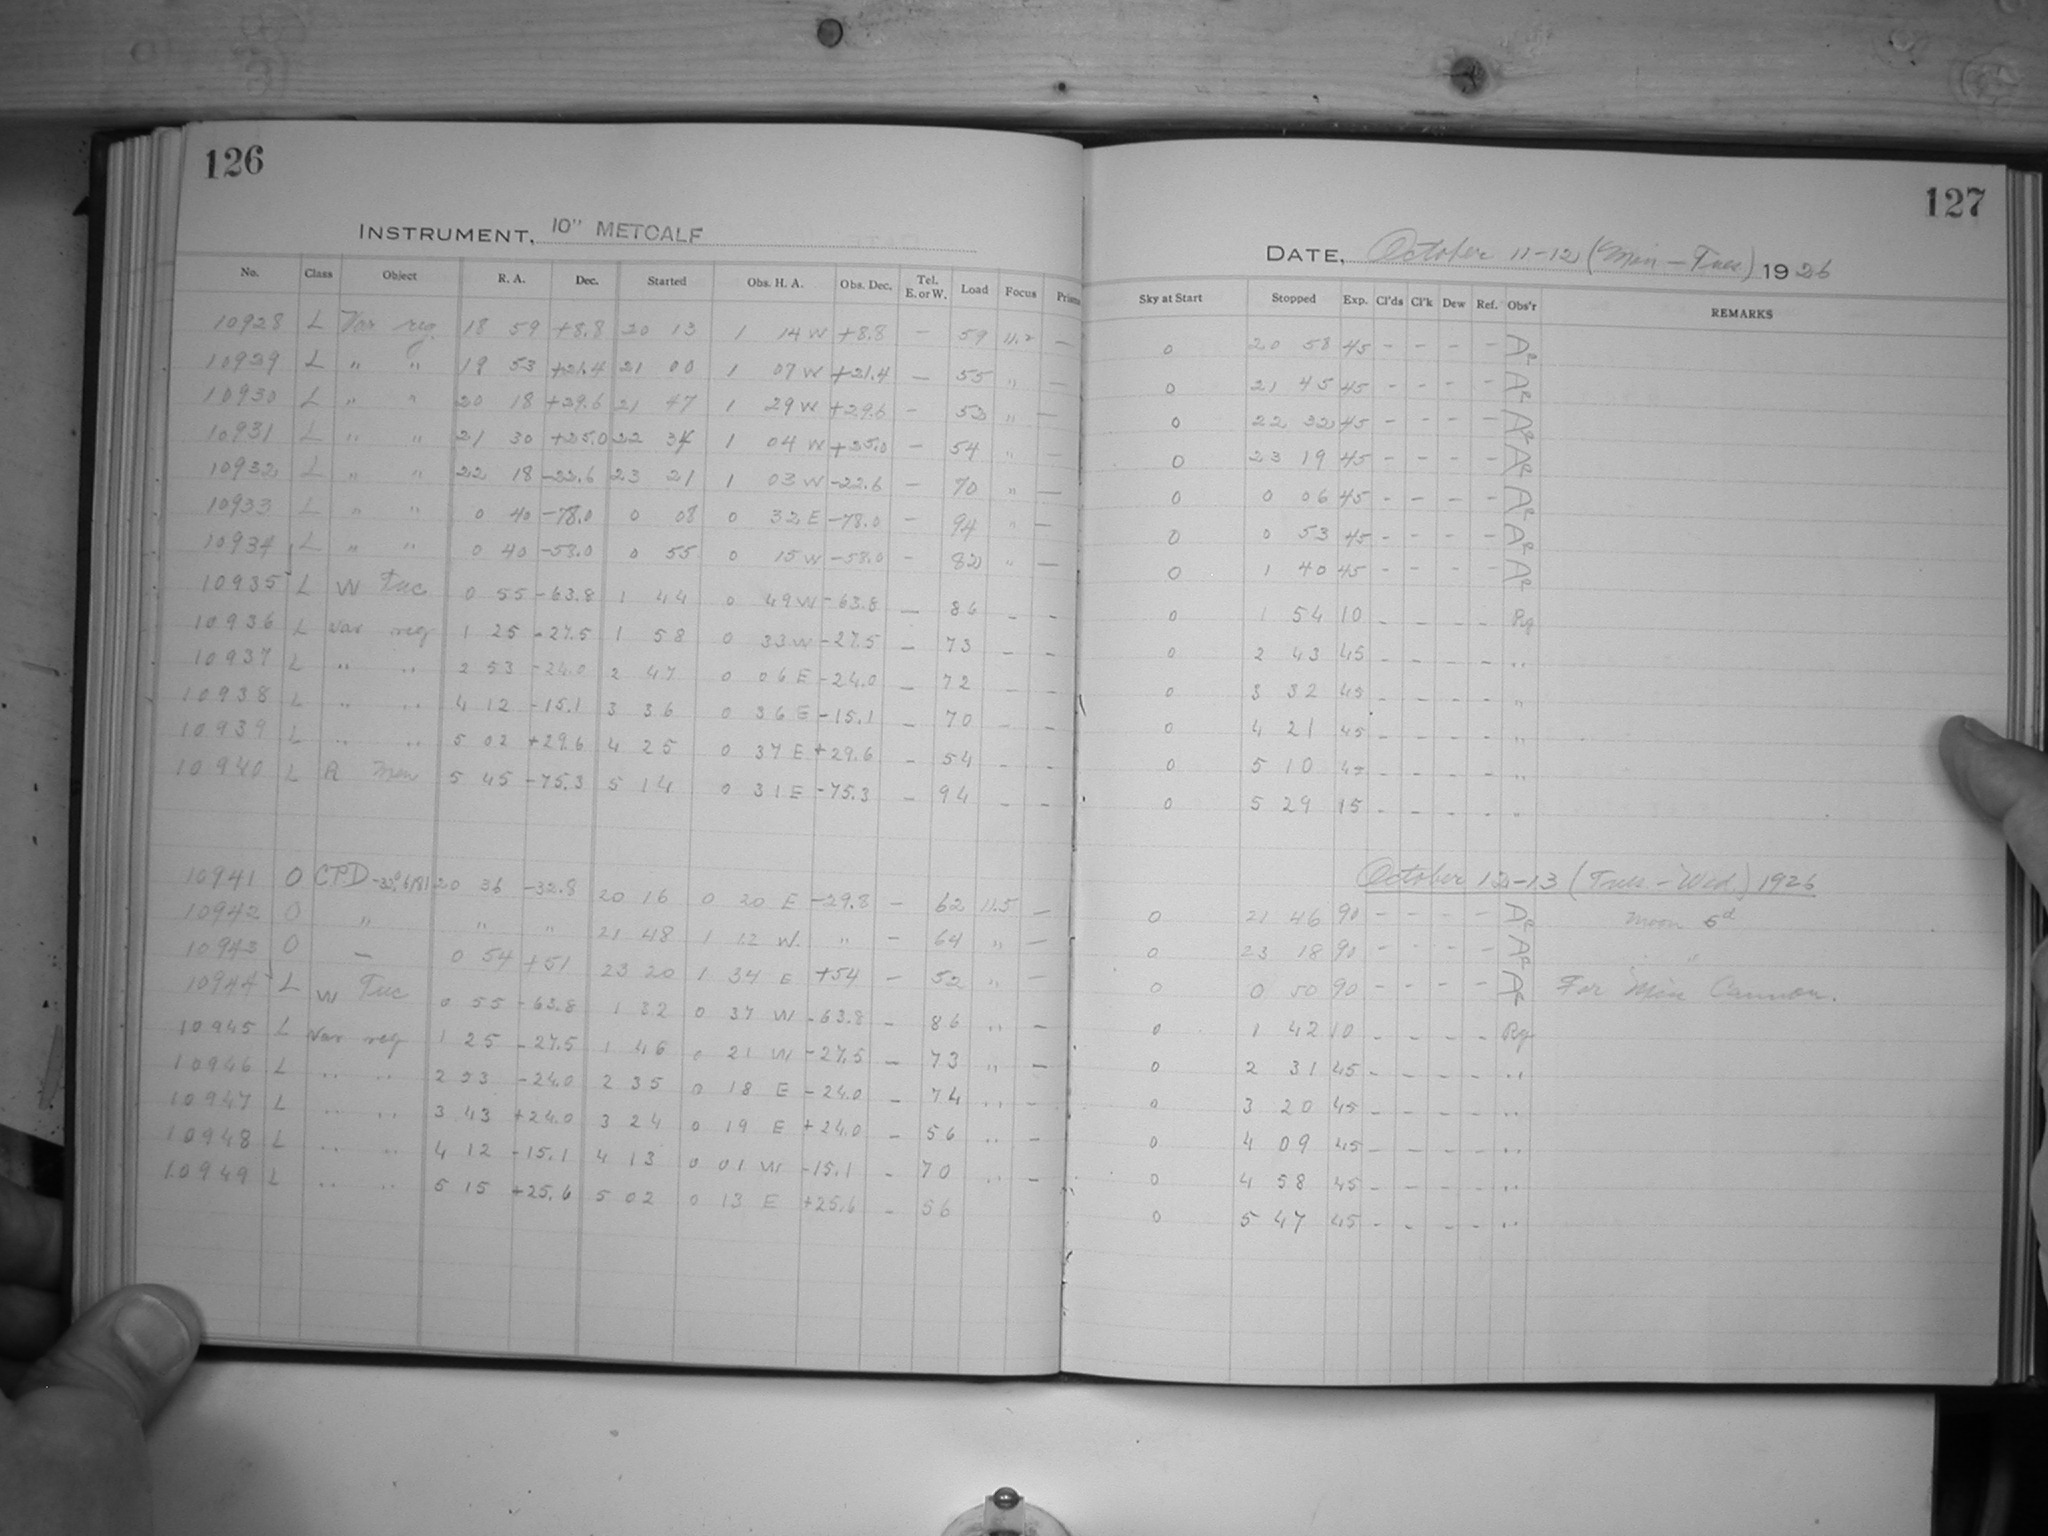 126
INSTRUMENT, 10" METCALF
No. Class Object R. A. Dec. Started Obs. H. A. Obs. Dec. Tel. E. or W. Load Focus Prisms
10928 L Var reg. 18 59 +8.8 20 13 1 14 W +8.8 — 59 11.2 —
10929 L " " 19 53 +21.4 21 00 1 07 W +21.4 — 55 " —
10930 L " " 20 18 +29.6 21 47 1 29 W +29.6 - 52 " —
10931 L " " 21 30 +25.0 22 34 1 04 W +25.0 — 54 " —
10932 L " " 22 18 -22.6 23 21 1 03 W -22.6 — 70 " —
10933 L " " 0 40 -78.0 0 08 0 32 E -78.0 — 94 " —
10934 L " " 0 40 -58.0 0 55 0 15 W -58.0 - 82 " —
10935 L W Tuc 0 55 -63.8 1 44 0 49 W -63.8 — 86 - -
10936 L Var reg 1 25 -27.5 1 58 0 33 W -27.5 — 73 - -
10937 L " " 2 53 -24.0 2 47 0 06 E -24.0 — 72 - -
10938 L " " 4 12 -15.1 3 36 0 36 E -15.1 — 70 - -
10939 L " " 5 02 +29.6 4 25 0 37 E +29.6 - 54 - -
10940 L R Men 5 45 -75.3 5 14 0 31 E -75.3 — 94 - -
10941 O CPD -32° 6181 20 36 -32.8 20 16 0 20 E -29.8 — 62 11.5 —
10942 O " " " 21 48 1 12 W. " — 64 " —
10943 O — 0 54 +51 23 20 1 34 E +54 — 52 " —
10944 L W Tuc 0 55 -63.8 1 32 0 37 W -63.8 — 86 " —
10945 L Var reg 1 25 -27.5 1 46 0 21 W -27.5 — 73 " —
10946 L " " 2 53 -24.0 2 35 0 18 E -24.0 — 74 " -
10947 L " " 3 43 +24.0 3 24 0 19 E +24.0 — 56 " -
10948 L " " 4 12 -15.1 4 13 0 01 W -15.1 - 70 " —
10949 L " " 5 15 +25.6 5 02 0 13 E +25.6 — 56
127
DATE, October 11-12 (Mon-Tues) 1926
Sky at Start Stopped Exp. Cl'ds Cl'k Dew Ref. Obs'r REMARKS
0 20 58 45 - - - - AR
0 21 45 45 - - - - AR
0 22 32 45 - - - - AR
0 23 19 45 - - - - AR
0 0 06 45 - - - - AR
0 0 53 45 - - - - AR
0 1 40 45 - - - - AR
0 1 54 10 - - - - Rg
0 2 43 45 - - - - "
0 3 32 45 - - - - "
0 4 21 45 - - - - "
0 5 10 45 - - - - "
0 5 29 15 - - - - "
October 12-13 (Tues-Wed.) 1926
0 21 46 90 - - - - AR Moon 6d
0 23 18 90 - - - - AR "
0 0 50 90 - - - - AR For Miss Cannon.
0 1 42 10 - - - - Rg
0 2 31 45 - - - - "
0 3 20 45 - - - - "
0 4 09 45 - - - - "
0 4 58 45 - - - - "
0 5 47 45 - - - - "